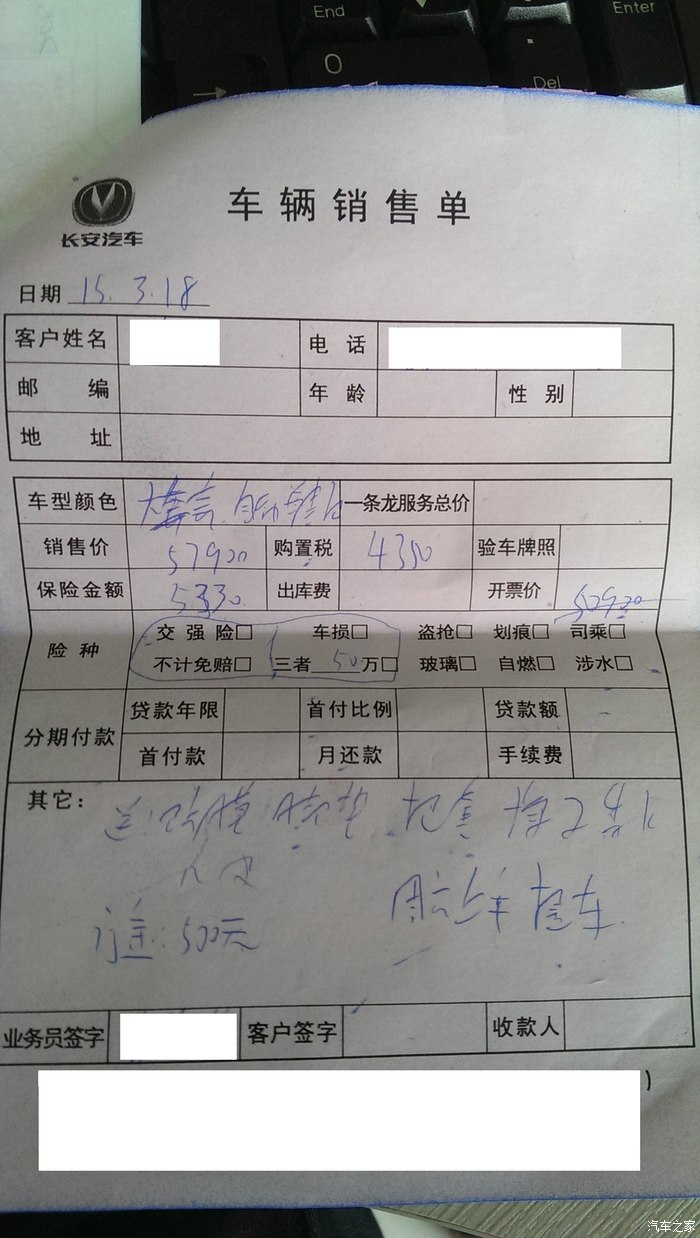 End
Enter
0
Del
车辆销售单
长安汽车
日期 15.3.18
客户姓名 电话
邮编 年龄 性别
地址
车型颜色 自动 一条龙服务总价
销售价 57900 购置税 4350 验车牌照
保险金额 5330 出库费 开票价
险种 交强险□ 车损□ 盗抢□ 划痕□ 司乘□
不计免赔□ 三者50万□ 玻璃□ 自燃□ 涉水□
分期付款 贷款年限 首付比例 贷款额
首付款 月还款 手续费
其它：
送:
订金:500元
业务员签字 客户签字 收款人
)
汽车之家